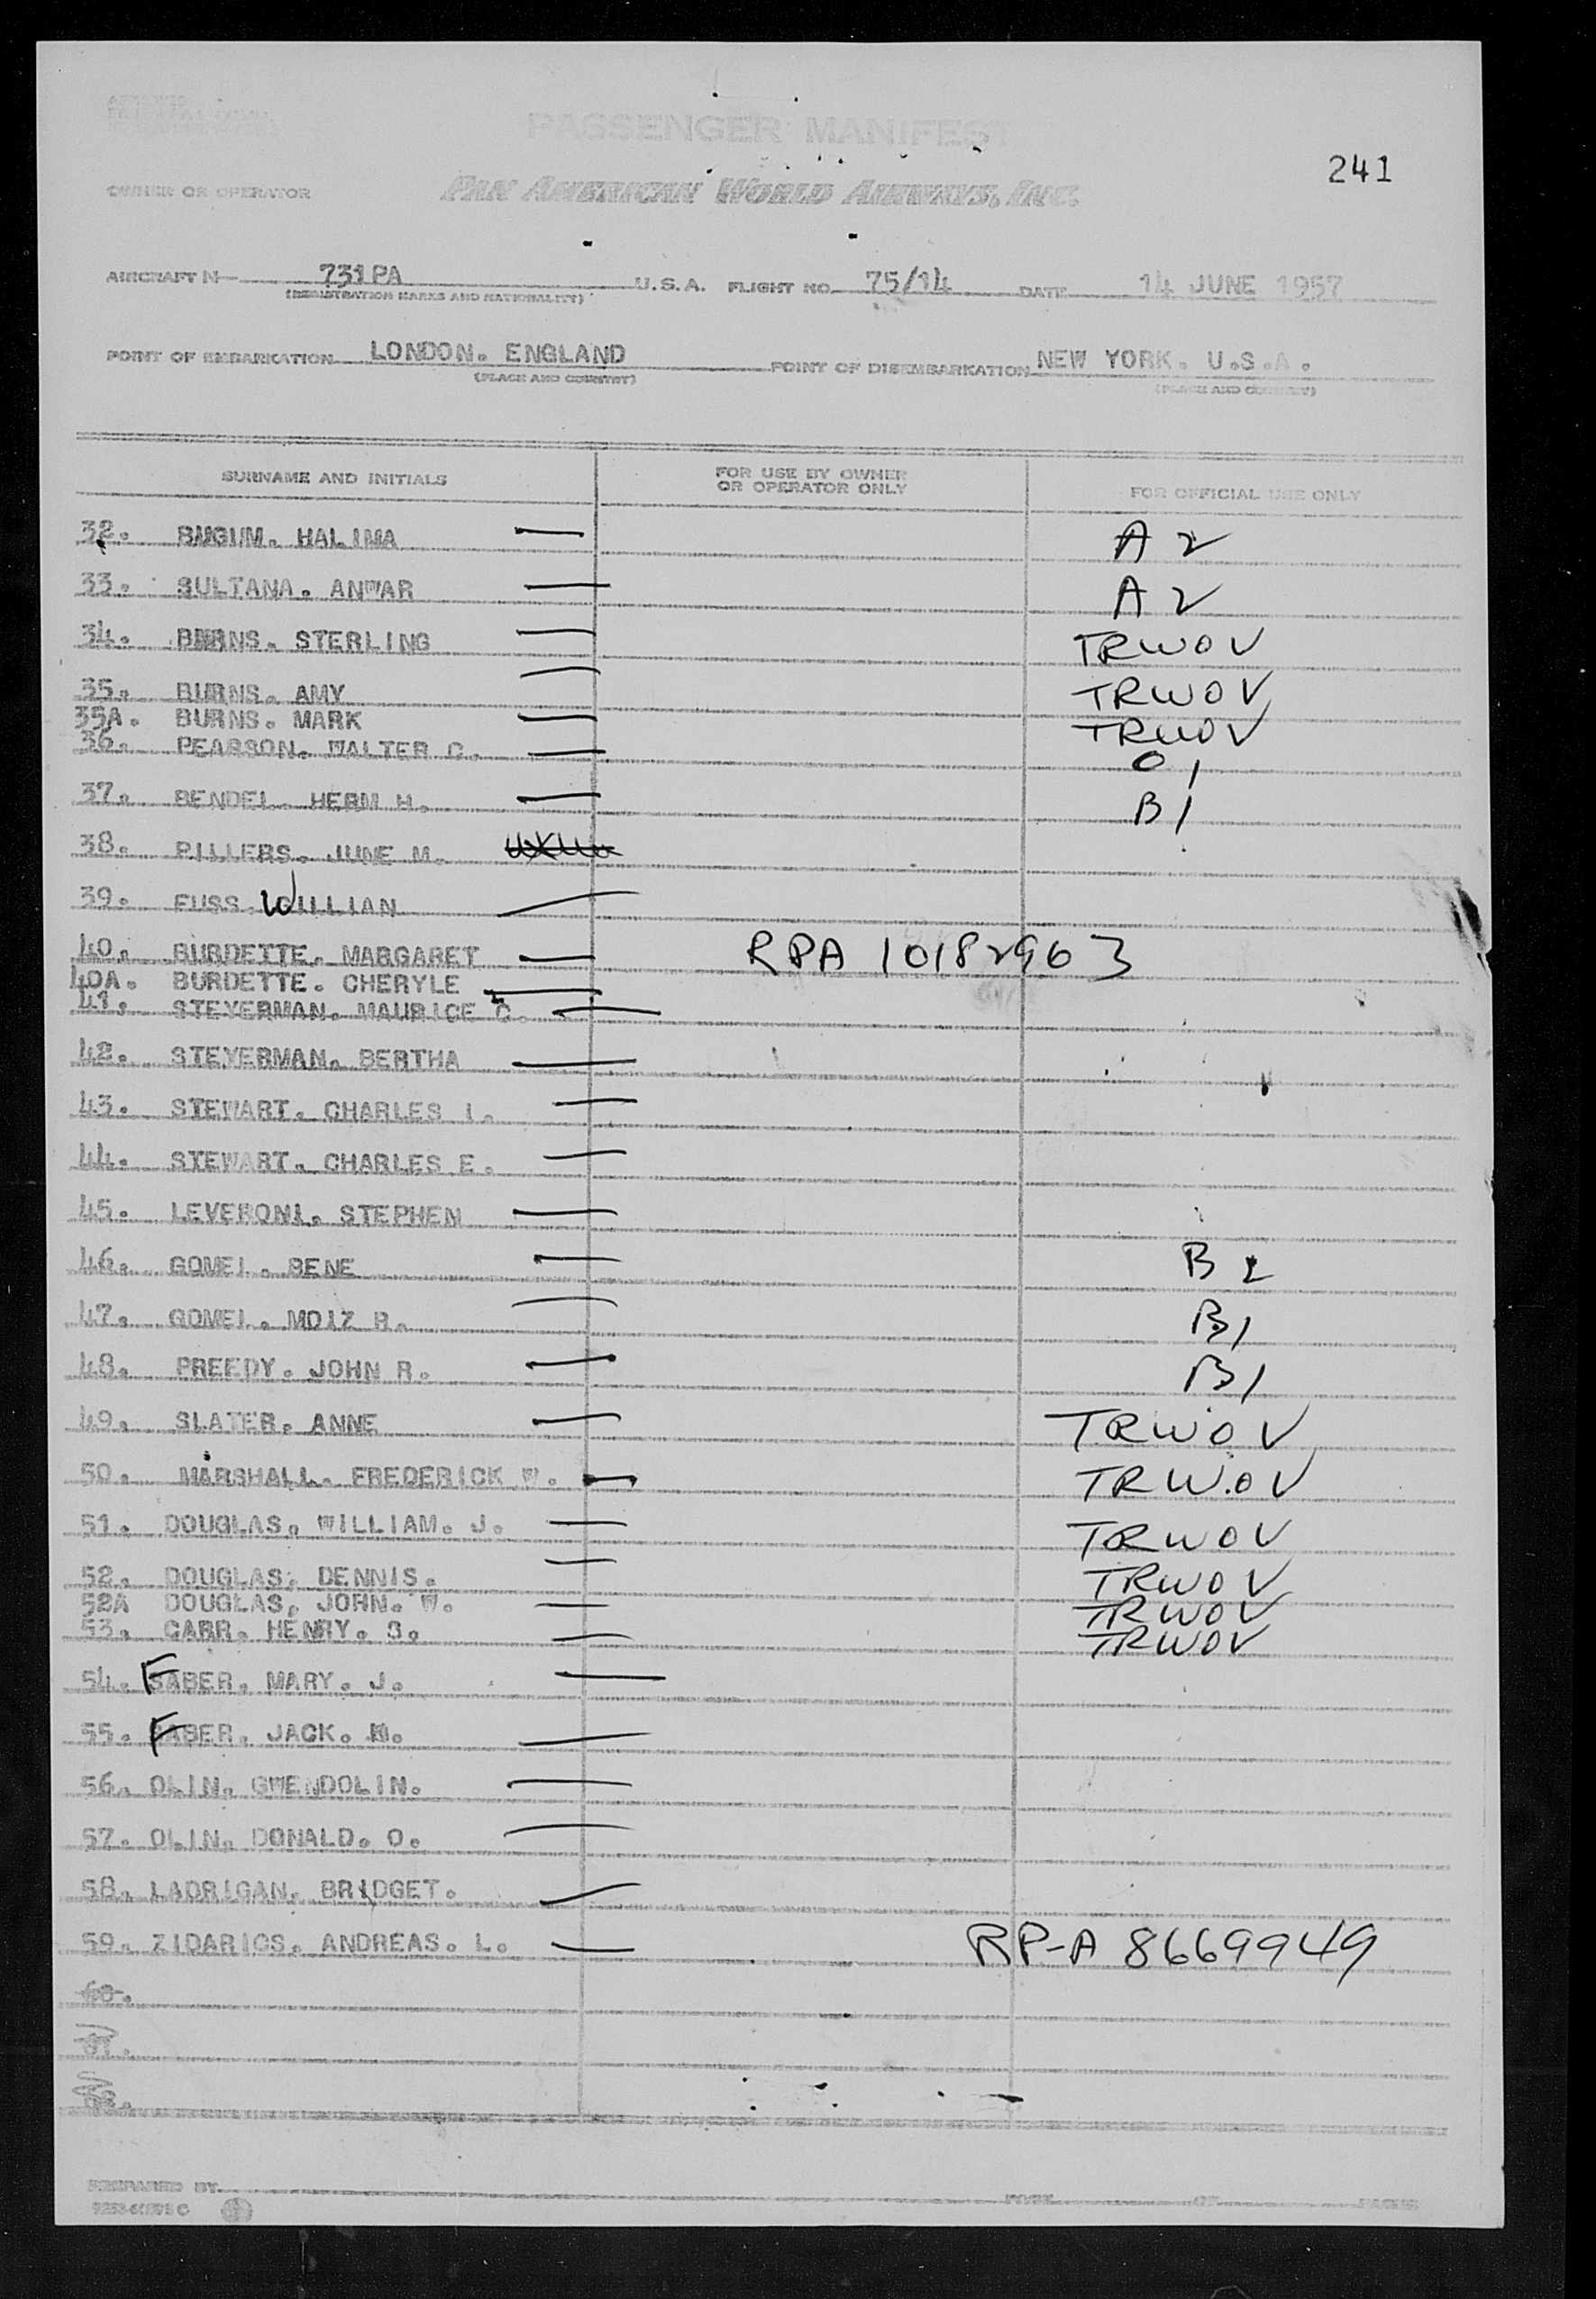 PASSENGER MANIFEST
241
OWNER OR OPERATOR PAN AMERICAN WORLD AIRWAYS, INC.
AIRCRAFT N 731PA U.S.A. FLIGHT NO. 75/14 DATE 14 JUNE 1957
(REGISTRATION MARKS AND NATIONALITY)
POINT OF EMBARKATION LONDON. ENGLAND POINT OF DISEMBARKATION NEW YORK. U.S.A.
(PLACE AND COUNTRY) (PLACE AND COUNTRY)
SURNAME AND INITIALS FOR USE BY OWNER OR OPERATOR ONLY FOR OFFICIAL USE ONLY
32. BUGIM. HALIMA A2
33. SULTANA. ANWAR A2
34. BURNS. STERLING TRWOV
35. BURNS. AMY TRWOV
35A. BURNS. MARK TRWOV
36. PEARSON. WALTER C. O1
37. BENDEL. HERM H. B1
38. PILLERS. JUNE M.
39. FUSS. WILLIAN
40. BURDETTE. MARGARET RPA 10182963
40A. BURDETTE. CHERYLE
41. STEYERMAN. MAURICE C.
42. STEYERMAN. BERTHA
43. STEWART. CHARLES I.
44. STEWART. CHARLES E.
45. LEVERONI. STEPHEN
46. GOMEL. BENE B2
47. GOMEL. MOIZ R. B1
48. PREEDY. JOHN R. B1
49. SLATER. ANNE TRWOV
50. MARSHALL. FREDERICK W. TRW.OV
51. DOUGLAS. WILLIAM. J. TRWOV
52. DOUGLAS. DENNIS. TRWOV
52A DOUGLAS. JOHN. W. TRWOV
53. CARR. HENRY. S. TRWOV
54. FABER. MARY. J.
55. FABER. JACK. M.
56. OLIN. GWENDOLIN.
57. OLIN. DONALD. O.
58. LADRIGAN. BRIDGET.
59. ZIDARICS. ANDREAS. L. RP-A 8669949
60.
61.
62.
PREPARED BY PAGE OF PAGES